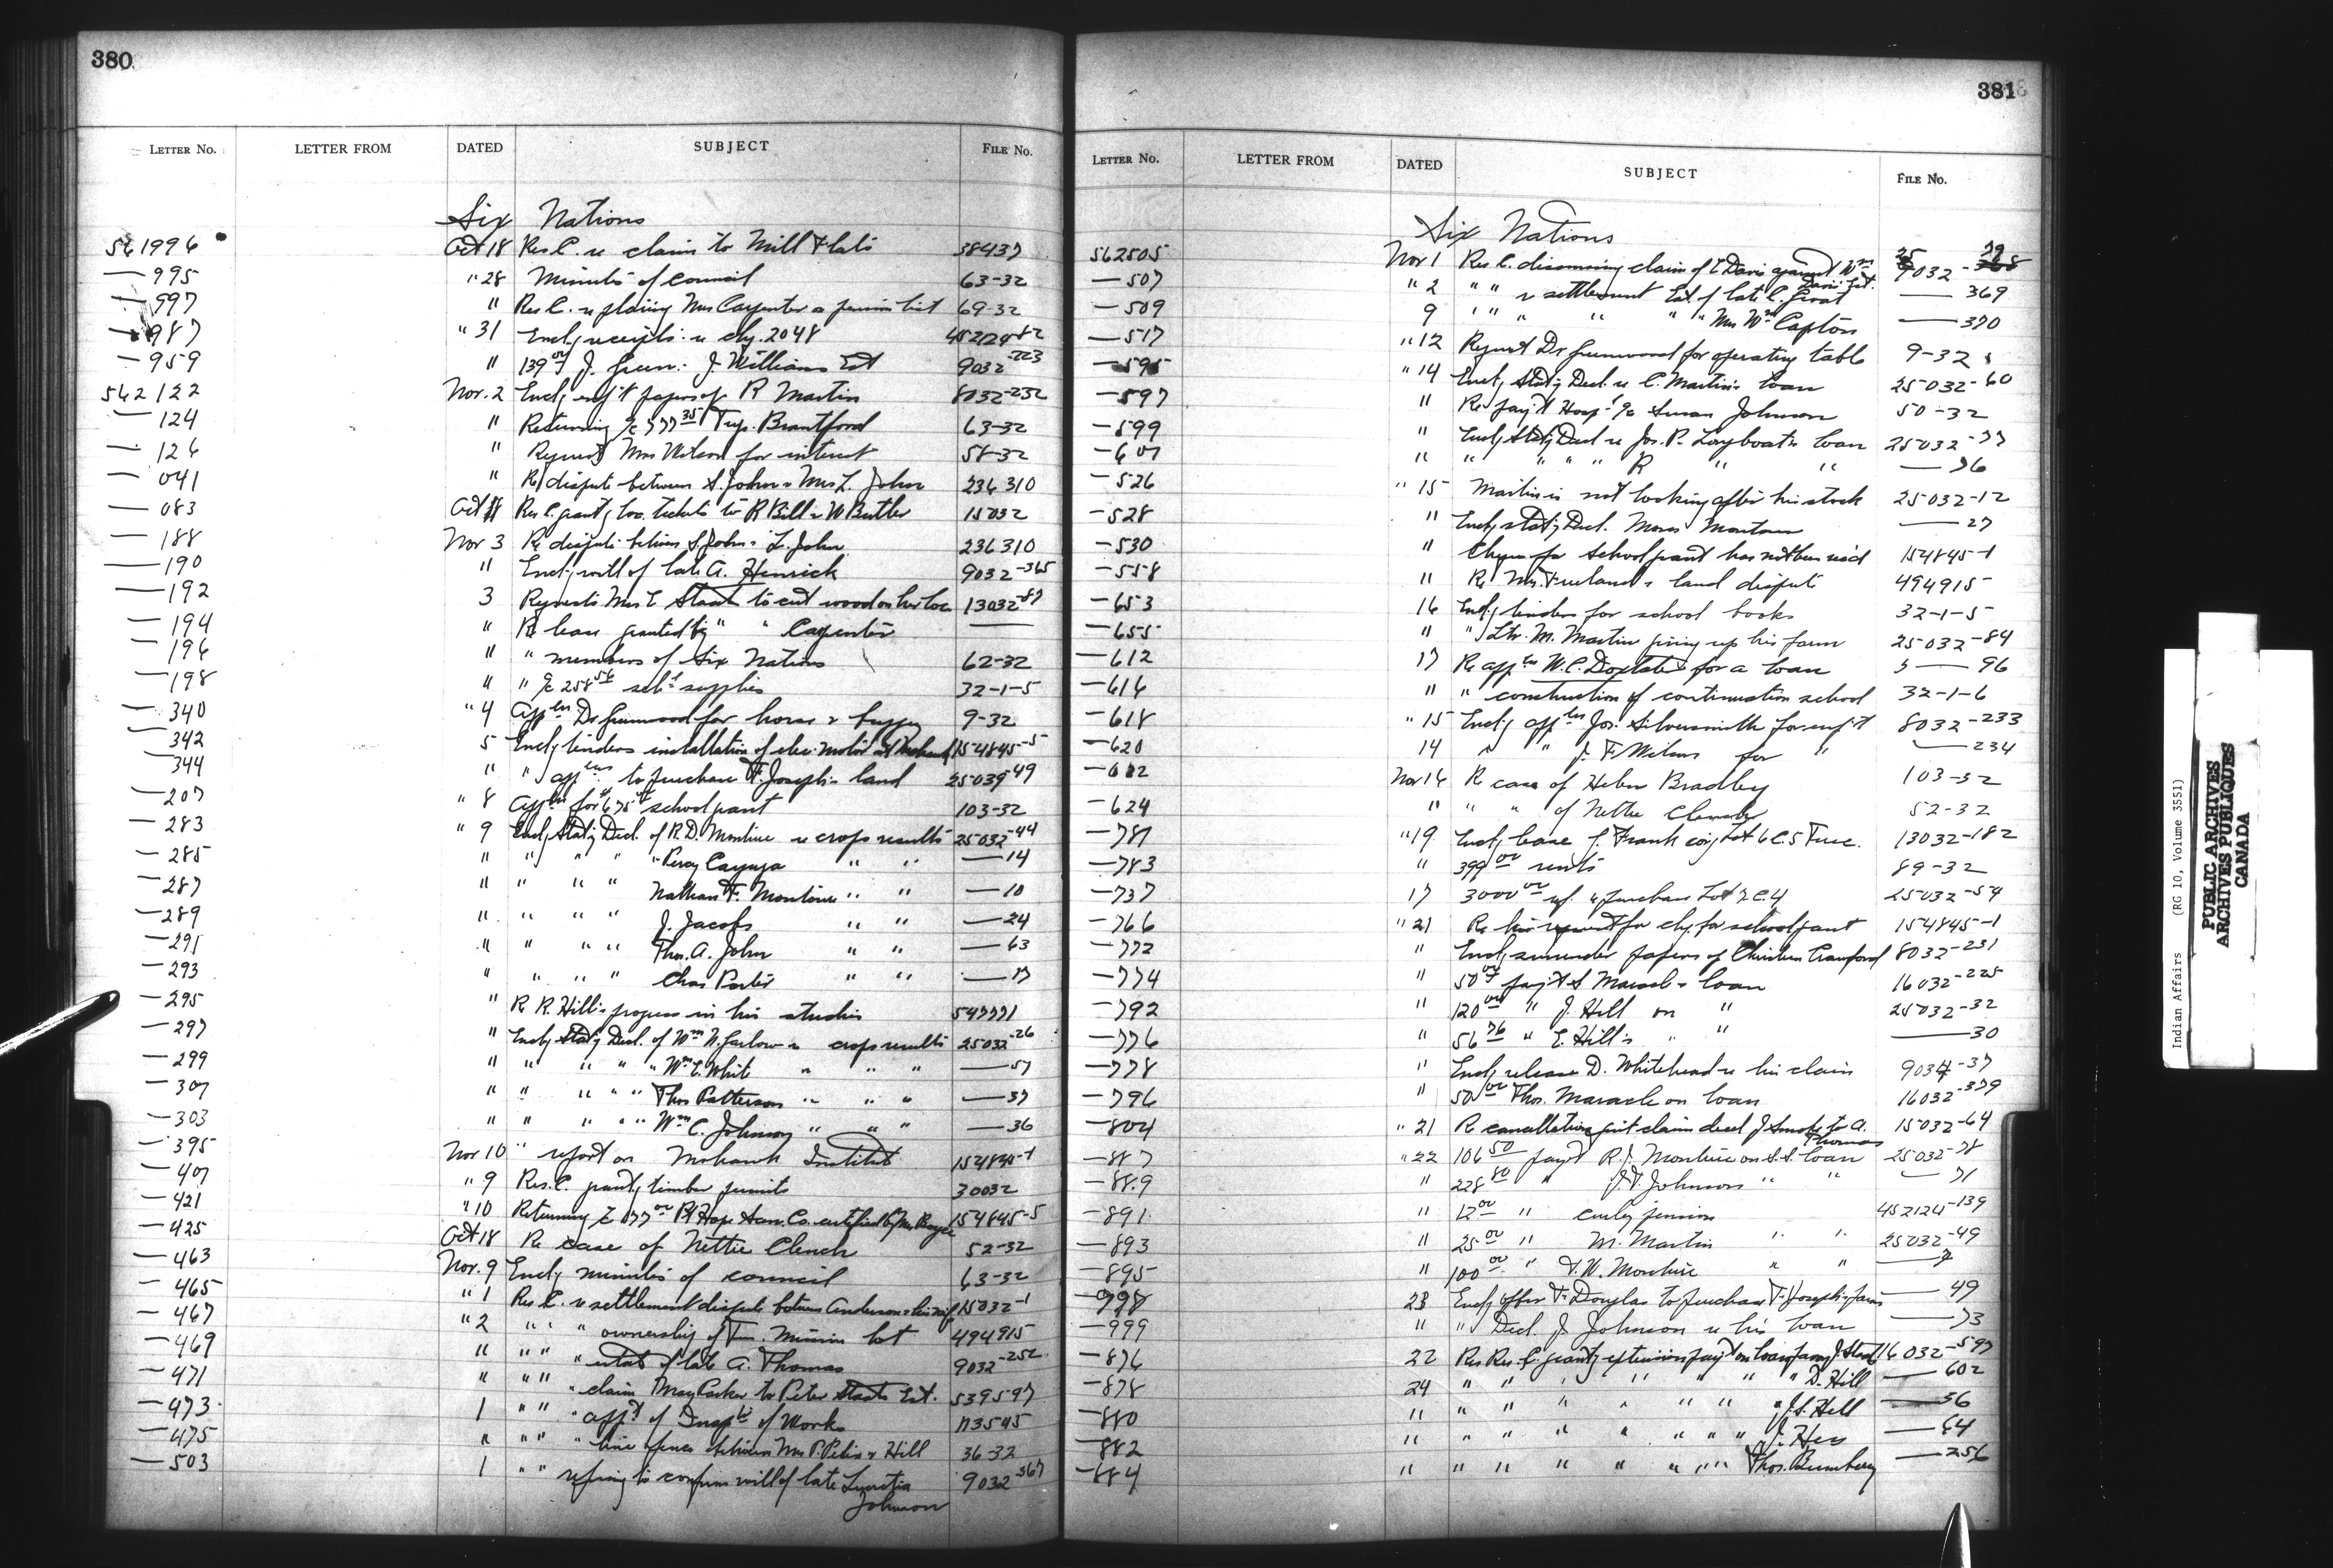 380
LETTER NO. LETTER FROM DATED SUBJECT FILE NO.
Six Nations
561996 Oct 18 Res C. re claim to Mill Flats 38437
— 995 " 28 Minutes of Council 63-32
— 997 " Res C. re placing Mrs Carpenter on pension list 69-32
— 987 " 31 Encl'g receipts re chq. 2048 452124-82
— 959 " 139 00 J. Green: J. Williams Est 9032-223
562122 Nov. 2 Encl'g enf't papers of R Martin 8032-232
— 124 " Returning a/c 777 35 Twp. Brantford 63-32
— 126 " Request Mrs Wilson for interest 58-32
— 041 " Re dispute between S. John & Mrs L. John 236310
— 083 Oct Res C. grant'g loc. tickets to R Bill & W Butler 15032
— 188 Nov 3 Re dispute between S. John & L. John 236310
— 190 " Encl'g will of late A. Henrick 9032-365
— 192 3 Requests Mrs E Staats to cut wood on her loc 13032-87
— 194 " Re lease granted by " " Carpenter —
— 196 " " members of Six Nations 62-32
— 198 " " a/c 258 56 sch'l supplies 32-1-5
— 340 " 4 App'tn Dr Greenwood for horse & buggy 9-32
— 342 5 Encl'g tenders installation of elec. motor at Mohawk 154845-5
— 344 " " app'ns to purchase F. Joseph's land 25039-49
— 207 " 8 App'tn for $675 00 school grant 103-32
— 283 " 9 Encl'g Stat'y Decl. of R.D. Monture re crops results 25032-44
— 285 " " " " " Percy Cayuga " " — 14
— 287 " " " " Nathan F. Monture " " — 10
— 289 " " " " J. Jacobs " " — 24
— 291 " " " " Thos. A. John " " — 63
— 293 " " " " Chas Porter " " — 17
— 295 " Re R. Hill's progress in his studies 547771
— 297 " Encl'g Stat'y Decl. of Wm N. Garlow re crops results 25032-26
— 299 " " " " " Wm E. White " " " — 57
— 301 " " " " " Thos Patterson " " " — 37
— 303 " " " " " Wm C. Johnson " " " — 36
— 395 Nov 10 " report on Mohawk Institute 154845-1
— 407 " 9 Res. C. grant'g timber permits 30032
— 421 " 10 Returning a/c 077 00 Hope Son Co. certified by Mr Boyce 154845-5
— 425 Oct 18 Re case of Nettie Clench 52-32
— 463 Nov. 9 Encl'g minutes of council 63-32
— 465 " 1 Res C. re settlement dispute between Anderson & his wife 15032-1
— 467 " 2 " " " ownership of Tus. Mission lot 494915
— 469 " " " " estate of late A. Thomas 9032-252
— 471 " " " " claim May Parker to Peter Staats Est. 539597
— 473 1 " " " app't of Insp'tr of Works 173545
— 475 " " " " line fence between Mrs P. Peters & Hill 36-32
— 503 1 " " refusing to confirm will of late Lucretia Johnson 9032-367
381
LETTER NO. LETTER FROM DATED SUBJECT FILE NO.
Six Nations
562505 Nov 1 Res C. dismissing claim of E Davis against Wm Davis Est. 25032-
— 507 " 2 " " re settlement Est. of late C. Groat — 369
— 509 9 " " " " " " Mrs Wm Capton — 370
— 517 " 12 Request Dr Greenwood for operating table 9-32
— 595 " 14 Encl'g Stat'y Decl. re C. Martin's loan 25032-60
— 597 " Re pay't Hosp'l a/c Susan Johnson 50-32
— 599 " Encl'g Stat'y Decl re Jos. P. Longboat's loan 25032-77
— 601 " " " " " R " " — 76
— 526 " 15 Martin is not looking after his stock 25032-12
— 528 " Encl'g stat'y Decl. Moses Monture — 27
— 530 " Cheque for School grant has not been rec'd 154845-1
— 558 " Re Mrs. Freeland's land dispute 494915
— 653 16 Encl'g tenders for school books 32-1-5
— 655 " " Ltr. M. Martin giving up his farm 25032-84
— 612 17 Re app'tn W.C. Doxtater for a loan — 96
— 616 " " construction of continuation school 32-1-6
— 618 " 15 Encl'g app'tn Jos. Silversmith for enf't 8032-233
— 620 14 " " J.F. Wilson for " — 234
— 622 Nov 16 Re case of Helen Bradley 103-32
— 624 " " " of Nettie Clench 52-32
— 781 " 19 Encl'g lease J. Frank cov'g Lot 6 C. 5 Tusc. 13032-182
— 783 " 399 00 rents 89-32
— 737 17 3000 00 re purchase Lot 2 C. 4 25032-54
— 766 " 21 Re his request for chq. for school grant 154845-1
— 772 " Encl'g surrender papers of Christina Crawford 8032-231
— 774 " 50 00 pay't S Maracle's loan 16032-225
— 792 " 120 00 " J. Hill on " 25032-32
— 776 " 56 76 " E. Hill's " — 30
— 778 " Encl'g release D. Whitehead re his claim 9034-37
— 796 " 50 00 Thos. Maracle on loan 16032-379
— 804 " 21 Re cancellation quit claim deed J Smoke to A. Thomas 15032-64
— 887 " 22 106 50 pay't R.J. Monture on S.S. loan 25032-78
— 889 " 228 80 " J.F. Johnson " " — 71
— 891 " 12 00 " Curley pension 452124-139
— 893 " 25 00 " M. Martin " " 25032-49
— 895 " 100 00 " F.W. Monture " " — 2
— 998 23 Encl'g offer F. Douglas to purchase F. Joseph's farm — 49
— 999 " " Decl. J. Johnson re his loan — 73
— 876 22 Res C. grant'g extension pay't on loan J. Staats 16032-597
— 878 24 " " " " " " " D. Hill — 602
— 880 " " " " " " " J.S. Hill — 56
— 882 " " " " " " " J. Hess — 64
— 884 " " " " " " " Thos. Bumberry — 256
Indian Affairs (RG 10, Volume 3551)
PUBLIC ARCHIVES
ARCHIVES PUBLIQUES
CANADA